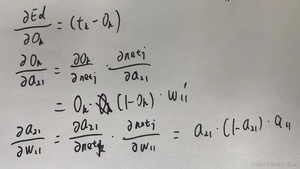 ∂Ed/∂Ok = (tk - Ok)
∂Ok/∂a21 = ∂Ok/∂netj · ∂netj/∂a21
= Ok · (1-Ok) · w11'
∂a21/∂w11 = ∂a21/∂netk · ∂netj/∂w11 = a21 · (1-a21) · a11